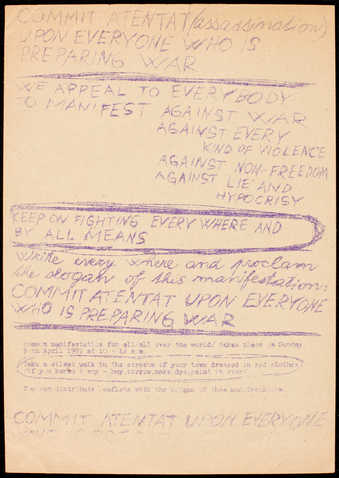 COMMIT ATENTAT (assassination)
UPON EVERYONE WHO IS
PREPARING WAR
WE APPEAL TO EVERYBODY
TO MANIFEST AGAINST WAR
AGAINST EVERY
KIND OF VIOLENCE
AGAINST NON-FREEDOM
AGAINST LIE AND
HYPOCRISY
KEEP ON FIGHTING EVERY WHERE AND
BY ALL MEANS
write every where and proclam
the slogan of this manifestation:
COMMIT ATENTAT UPON EVERYONE
WHO IS PREPARING WAR
manifestation for all all over the world takes place on Sunday
april at 10
Take a silent walk in the streets of your town dressed in red clothes
if you have any - buy, borrow, make, dye, paint
You can distribute leaflets with the slogan of this manifestation
COMMIT ATENTAT UPON EVERYONE